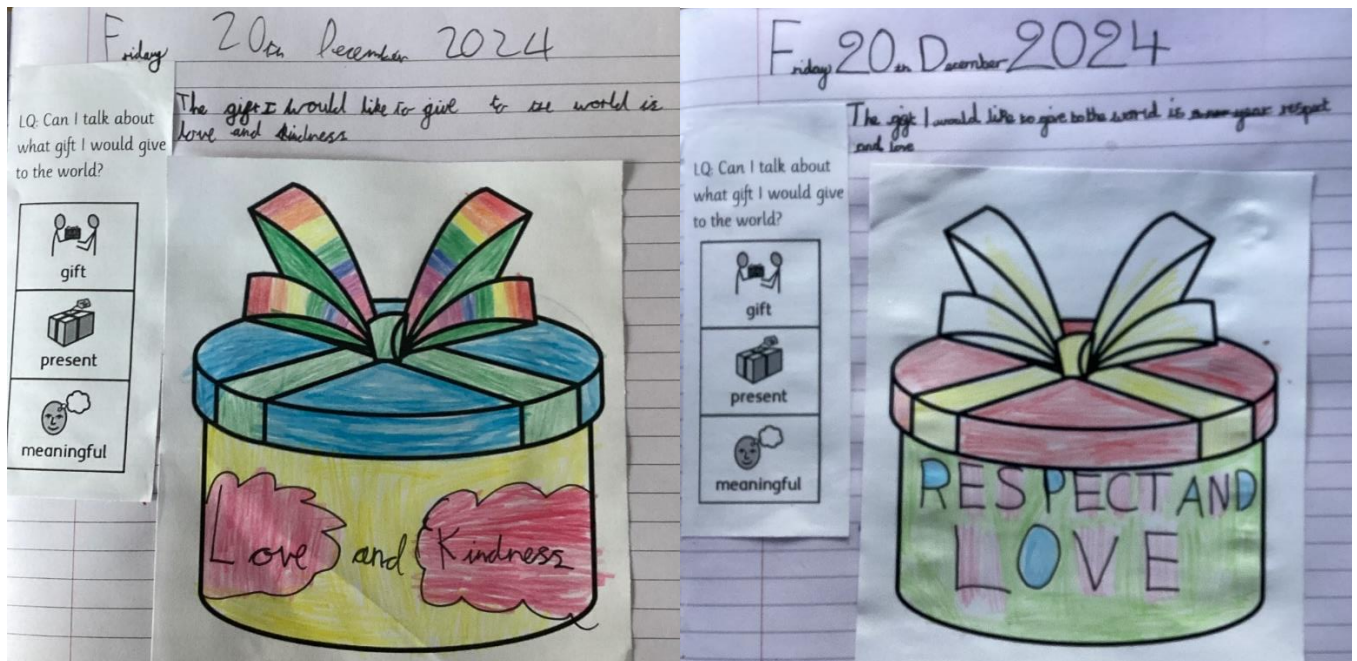 Friday 20th December 2024
The gift I would like to give to the world is
love and kindness
LQ: Can I talk about
what gift I would give
to the world?
gift
present
meaningful
Love and Kindness
Friday 20th December 2024
The gift I would like to give to the world is respect
and love
LQ: Can I talk about
what gift I would give
to the world?
gift
present
meaningful
RESPECT AND
LOVE